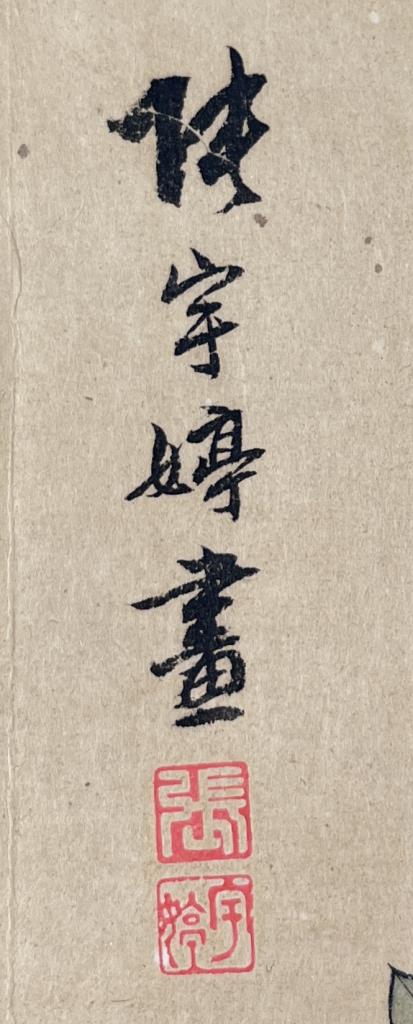 張宇婷畫
張
宇婷